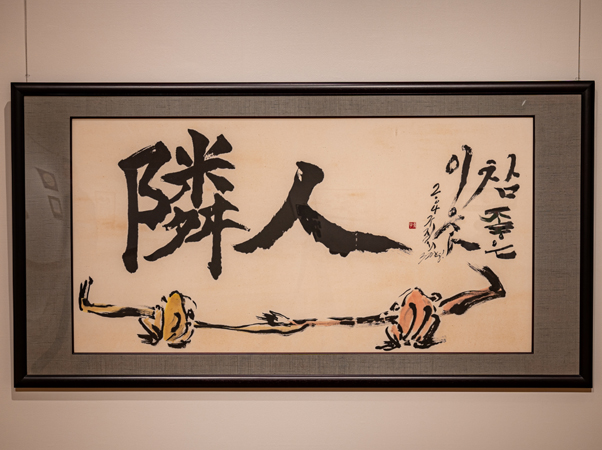 隣人
참 좋은
이웃